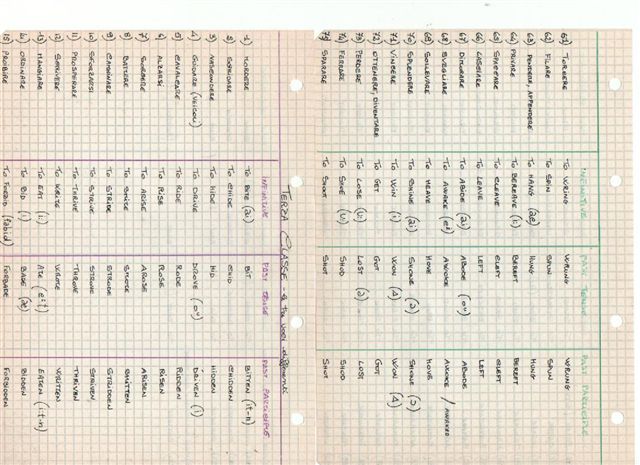 INFINITIVE PAST TENSE PAST PARTICIPLE
61) TORCERE TO WRING WRUNG WRUNG
62) FILARE TO SPIN SPUN SPUN
63) PENDERE, APPENDERE TO HANG (ae) HUNG HUNG
64) PRIVARE TO BEREAVE (i:) BEREFT BEREFT
65) SPACCARE TO CLEAVE CLEFT CLEFT
66) LASCIARE TO LEAVE LEFT LEFT
67) DIMORARE TO ABIDE (ai) ABODE (ou) ABODE
68) SVEGLIARE TO AWAKE (ei) AWOKE AWOKE / AWAKED
69) SOLLEVARE TO HEAVE HOVE HOVE
70) SPLENDERE TO SHINE (ai) SHONE (ɔ) SHONE (ɔ)
71) VINCERE TO WIN (i) WON (ʌ) WON (ʌ)
72) OTTENERE, DIVENTARE TO GET GOT GOT
73) PERDERE TO LOSE (u) LOST (ɔ) LOST
74) FERRARE TO SHOE (u) SHOD SHOD
75) SPARARE TO SHOT SHOT SHOT
TERZA CLASSE
INFINITIVE PAST TENSE PAST PARTICIPLE
1) MORDERE TO BITE (ai) BIT BITTEN (it-n)
2) SGRIDARE TO CHIDE CHID CHIDDEN
3) NASCONDERE TO HIDE HID HIDDEN
4) GUIDARE (VEICOLI) TO DRIVE DROVE (ou) DRIVEN (i)
5) CAVALCARE TO RIDE RODE RIDDEN
6) ALZARSI TO RISE ROSE RISEN
7) SORGERE TO ARISE AROSE ARISEN
8) BATTERE TO SMITE SMOTE SMITTEN
9) CAMMINARE TO STRIDE STRODE STRIDDEN
10) SFORZARSI TO STRIVE STROVE STRIVEN
11) PROSPERARE TO THRIVE THROVE THRIVEN
12) SCRIVERE TO WRITE WROTE WRITTEN
13) MANGIARE TO EAT (i:) ATE (eit) EATEN (it-n)
14) ORDINARE TO BID (i) BADE (ae) BIDDEN
15) PROIBIRE TO FORBID (fəbid) FORBADE FORBIDDEN